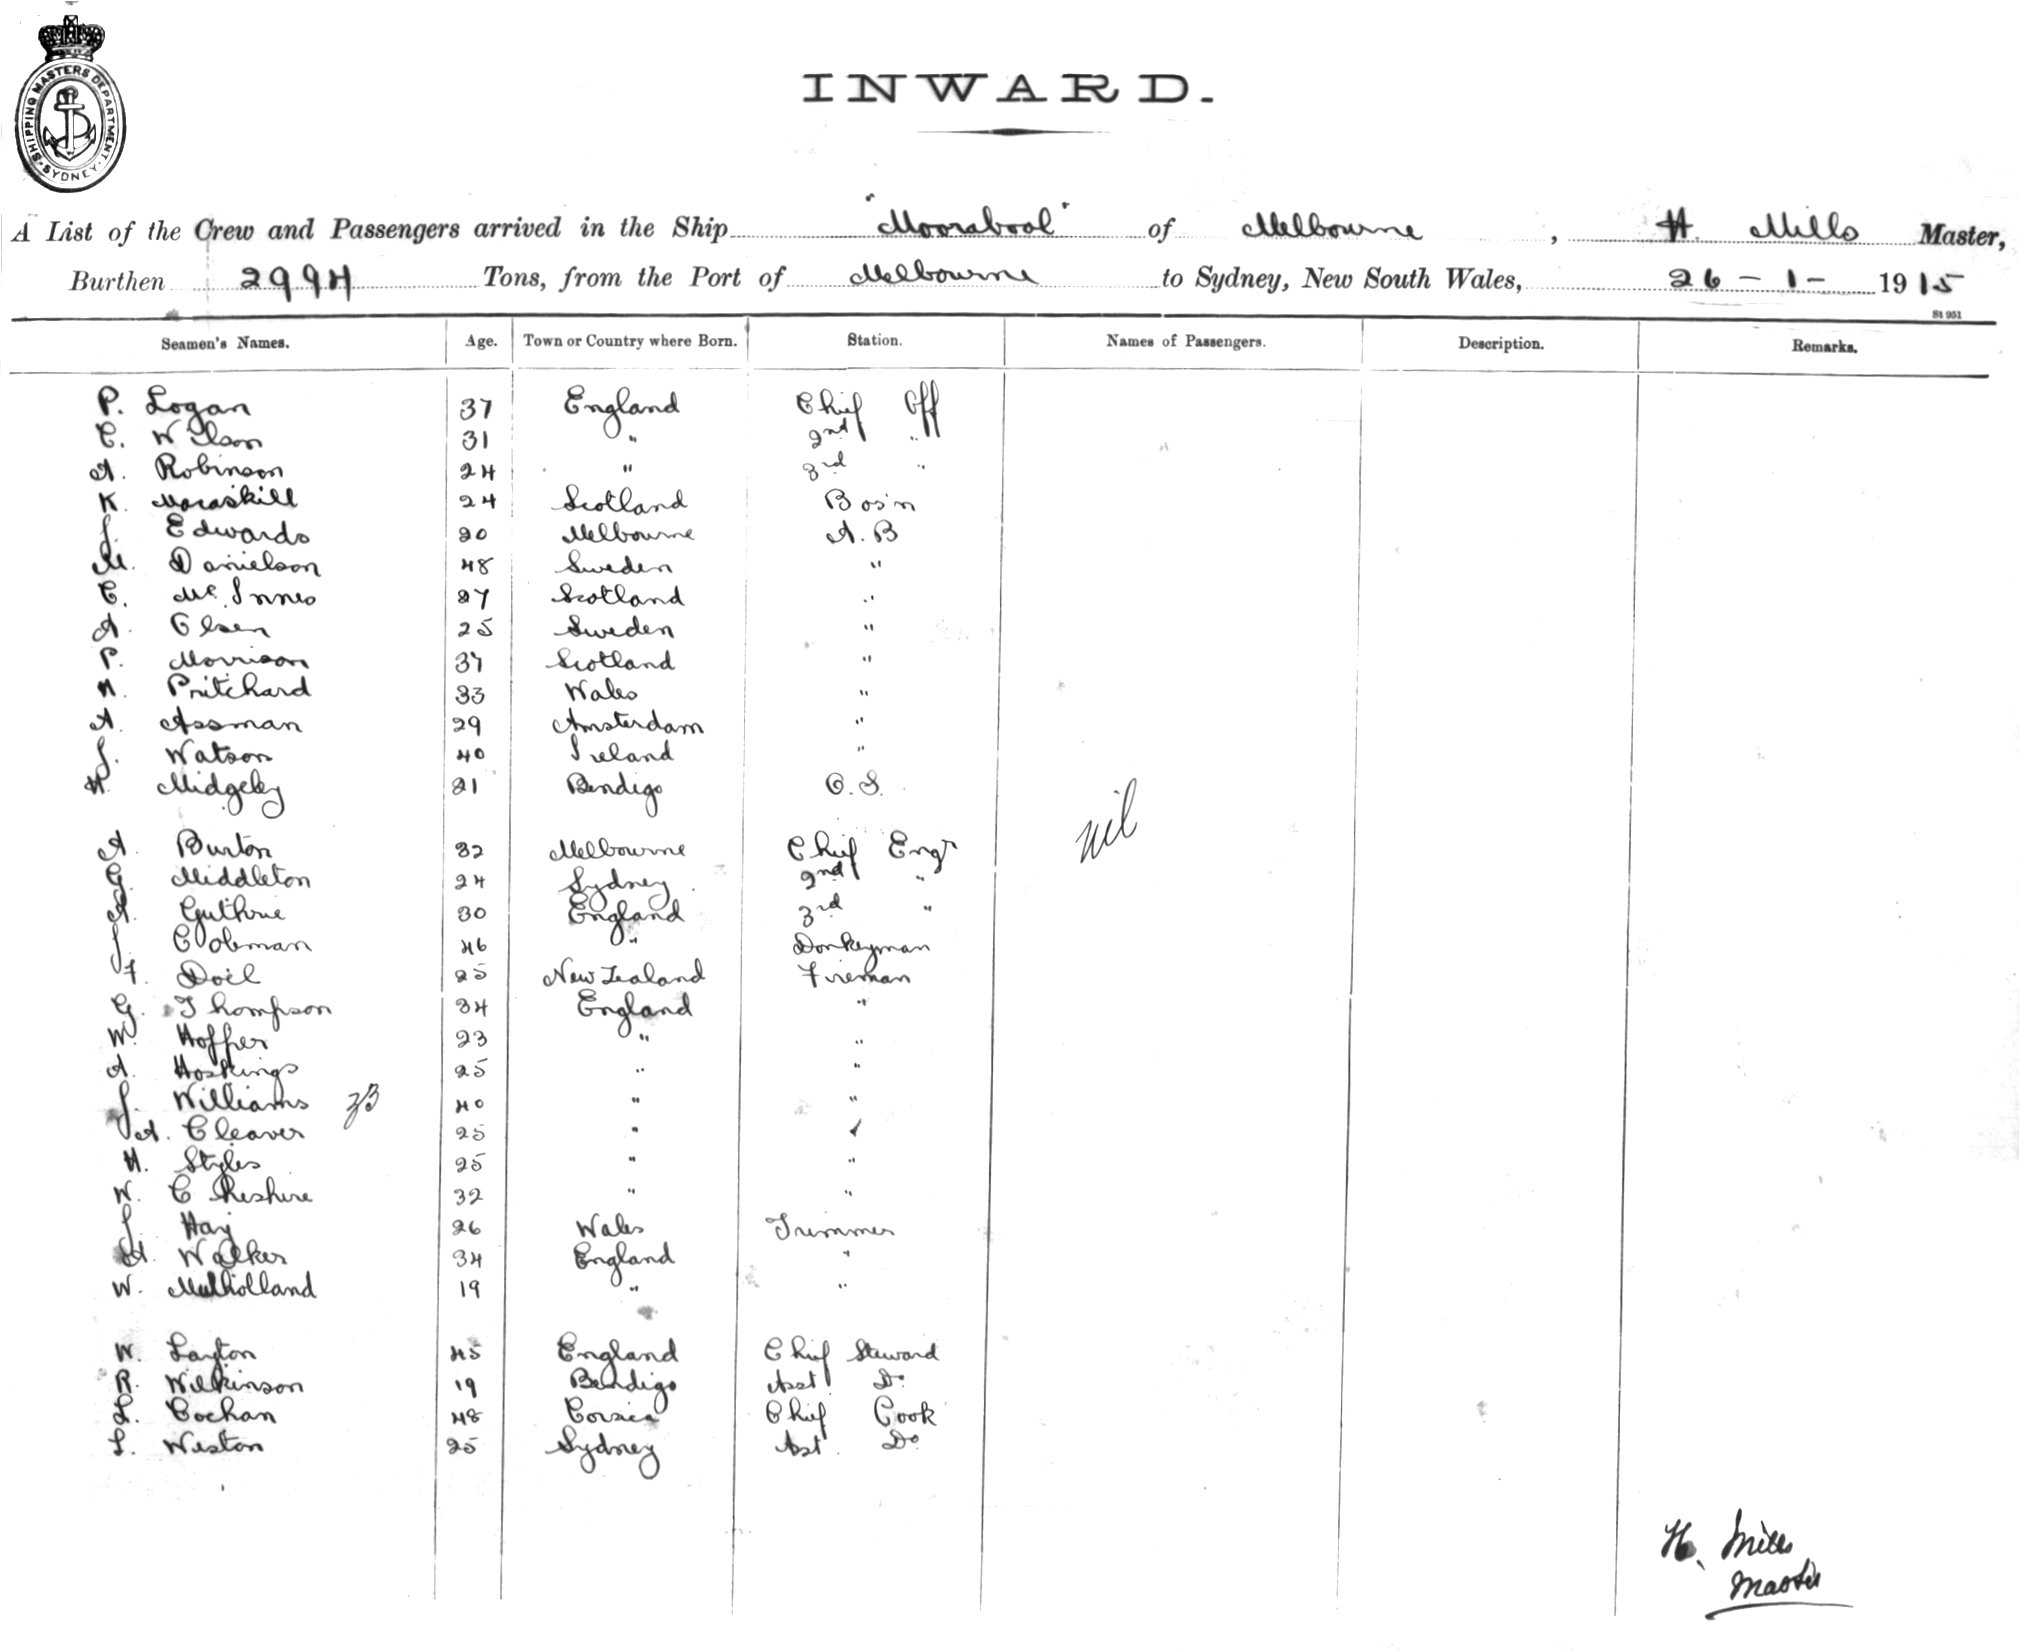 SHIPPING MASTERS DEPARTMENT. SYDNEY
INWARD.
A List of the Crew and Passengers arrived in the Ship "Moorabool" of Melbourne, H. Mills Master,
Burthen 2994 Tons, from the Port of Melbourne to Sydney, New South Wales, 26 - 1 - 1915
St 951
Seamen's Names. Age. Town or Country where Born. Station. Names of Passengers. Description. Remarks.
P. Logan 37 England Chief Off
C. Wilson 31 " 2nd "
A. Robinson 24 " 3rd "
K. Macaskill 24 Scotland Bos'n
J. Edwards 20 Melbourne A.B
M. Danielson 48 Sweden "
C. McInnes 27 Scotland "
A. Olsen 25 Sweden "
P. Morrison 37 Scotland "
H. Pritchard 33 Wales "
A. Assman 29 Amsterdam "
J. Watson 40 Ireland "
H. Midgeley 21 Bendigo O.S.
nil
A. Burton 32 Melbourne Chief Engr
G. Middleton 24 Sydney 2nd "
A. Guthrie 30 England 3rd "
J. Coleman 46 " Donkeyman
F. Doel 25 New Zealand Fireman
G. Thompson 34 England "
W. Hopper 23 " "
A. Hoskings 25 " "
J. Williams 40 " "
A. Cleaver 25 " "
H. Styles 25 " "
W. Cheshire 32 " "
J. Hay 26 Wales Trimmer
A. Walker 34 England "
W. Mulholland 19 " "
W. Layton 45 England Chief Steward
R. Wilkinson 19 Bendigo Asst Do
L. Cochan 48 Corsica Chief Cook
L. Weston 25 Sydney Asst. Do
H. Mills
Master